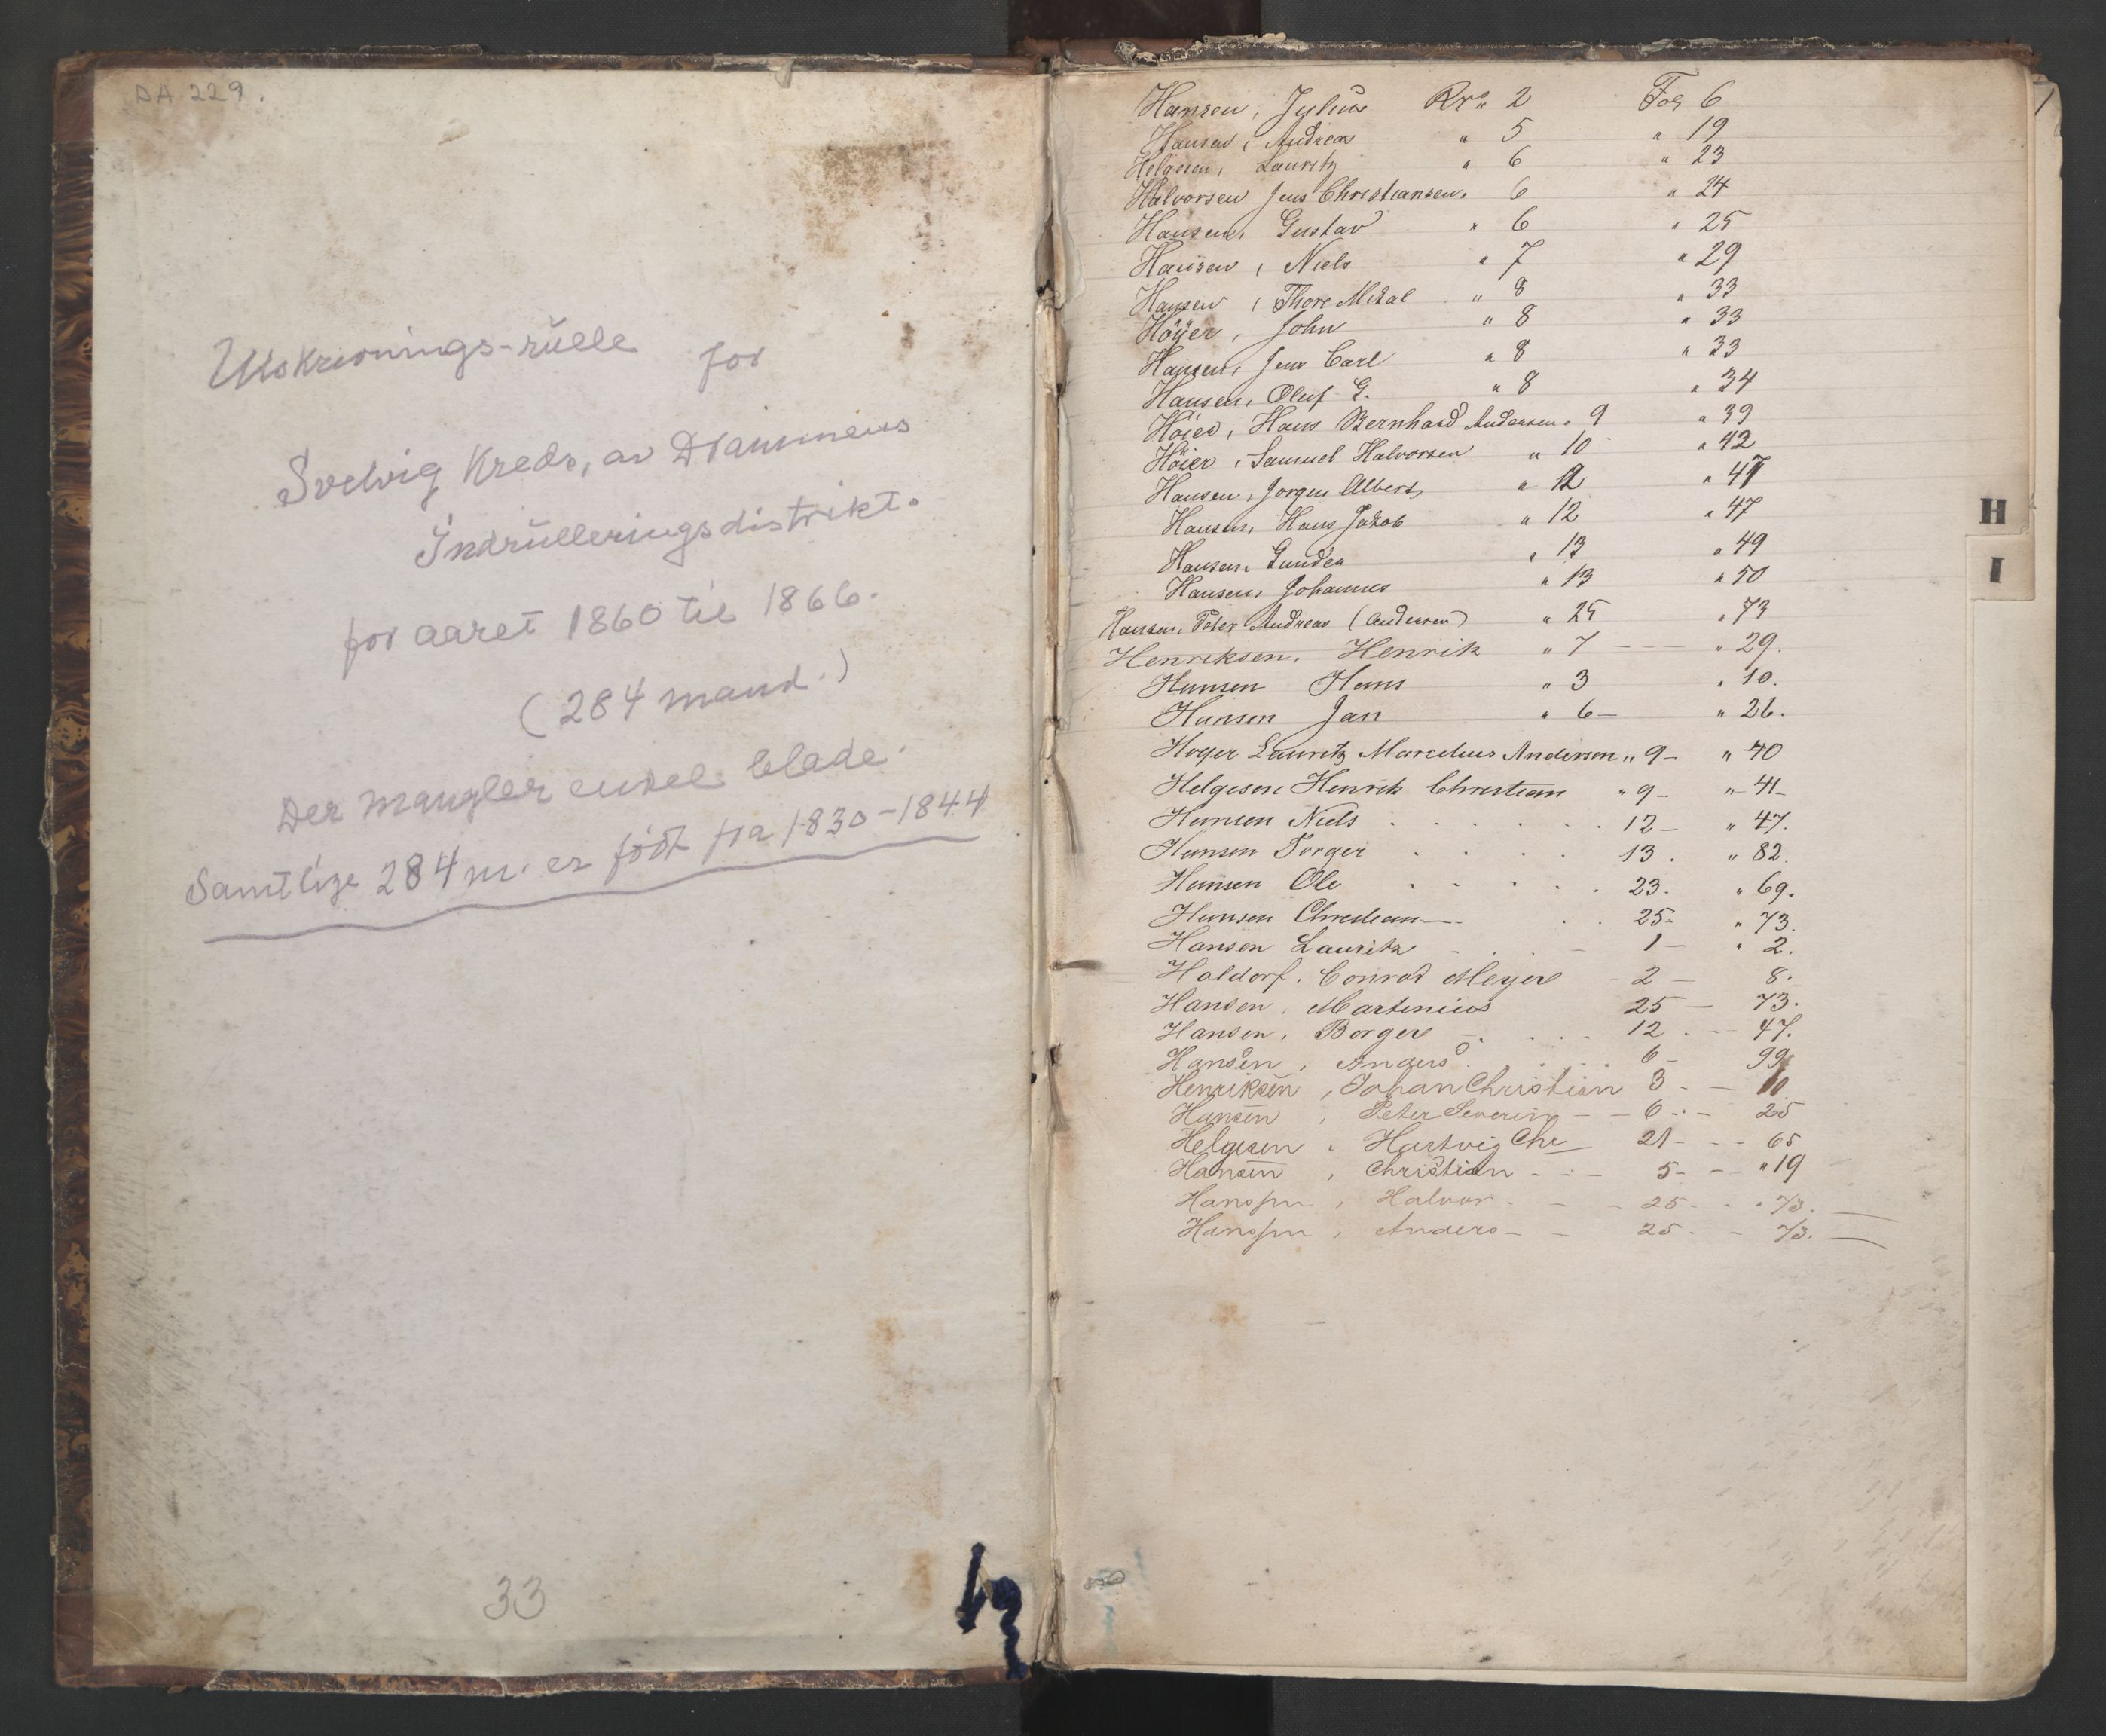 DA 229.
Utskrivnings-rŭlle for
Svelvig Kreds, av Drammens
Indrŭlleringsdistrikt.
for aaret 1860 til 1866.
(284 mand.)
Der mangler enkel. blade.
Samtlige 284 m. er födt fra 1830-1844
33
1
Hansen, Julius Rro 2 Fol 6
Hansen, Andreas " 5 " 19
Helgesen, Lauritz " 6 " 23
Halvorsen Jens Christiansen " 6 " 24
Hansen, Gustav " 6 " 25
Hansen, Niels " 7 " 29
Hansen, Thore Mikal " 8 " 33
Höÿer, John " 8 " 33
Hansen, Jens Carl " 8 " 33
Hansen, Oluf G. " 8 " 34
Höier, Hans Bernhard Andersen " 9 " 39
Höier, Samuel Halvorsen " 10 " 42
Hansen, Jørgen Albert " 12 " 47
Hansen, Hans Jakob " 12 " 47
Hansen, Gunder " 13 " 49
Hansen, Johannes " 13 " 50
Hansen, Peter Andreas (Andersen) " 25 " 73
Henriksen, Henrik " 7 - - - " 29.
Hansen Hans " 3 " 10.
Hansen Jan " 6 - " 26.
Høyer Lauritz Marcelius Andersen " 9 - " 40
Helgesen Henrik Christian " 9 - " 41 -
Hansen Niels . . . . . . 12 - " 47.
Hansen Torger . . . . 13. " 82.
Hansen Ole . . . . . 23. " 69.
Hansen Christian - . . 25 - " 73.
Hansen Lauritz - . . - 1 - " 2.
Haldorf. Conrad Meyer - 2 - 8.
Hansen. Martinius 25 - 73.
Hansen, Borger - . . . . 12 . - 47.
Hansen, Anders . . . . 6 - 99
Henriksen, Johan Christian 3 - - 10
Hansen, Peter Severin - - 6 - - 25
Helgesen, Hartvig Chr 21 - - - 65
Hansen, Christian - - - 5 - - " 19
Hanssen, Halvor. - - 25 - . " 73. -
Hanssen, Anders - - 25 . - 73. -
H
I